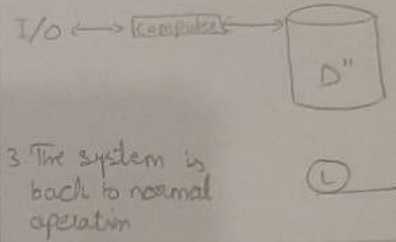 I/O ⟷ Computer ⟷
D"
3. The system is
back to normal
operation
L